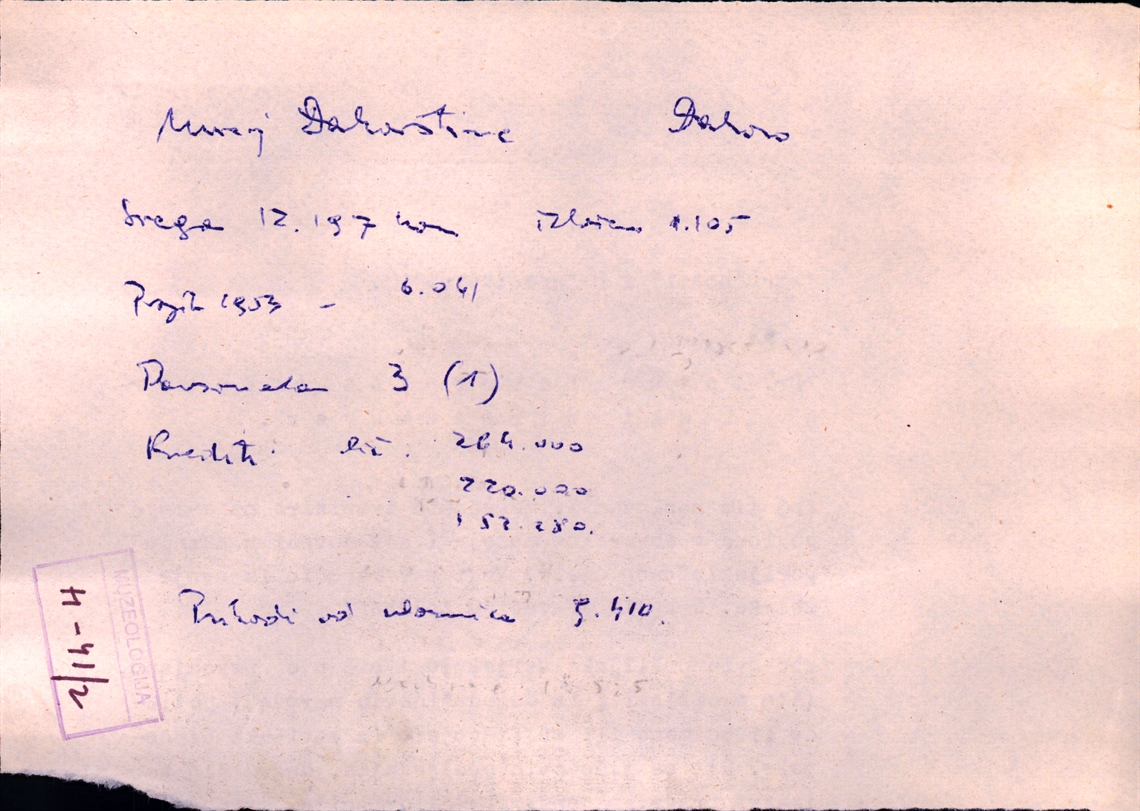 Muzej Đakovštine Đakovo
Svega 12.197 kom izloženo 1.105
Posjet 1953 - 6.041
Personala 3 (1)
Krediti: lič. 264.000
220.000
152.280.
Prihodi od ulaznica 5.410.
MUZEOLOGIJA
H-41/2